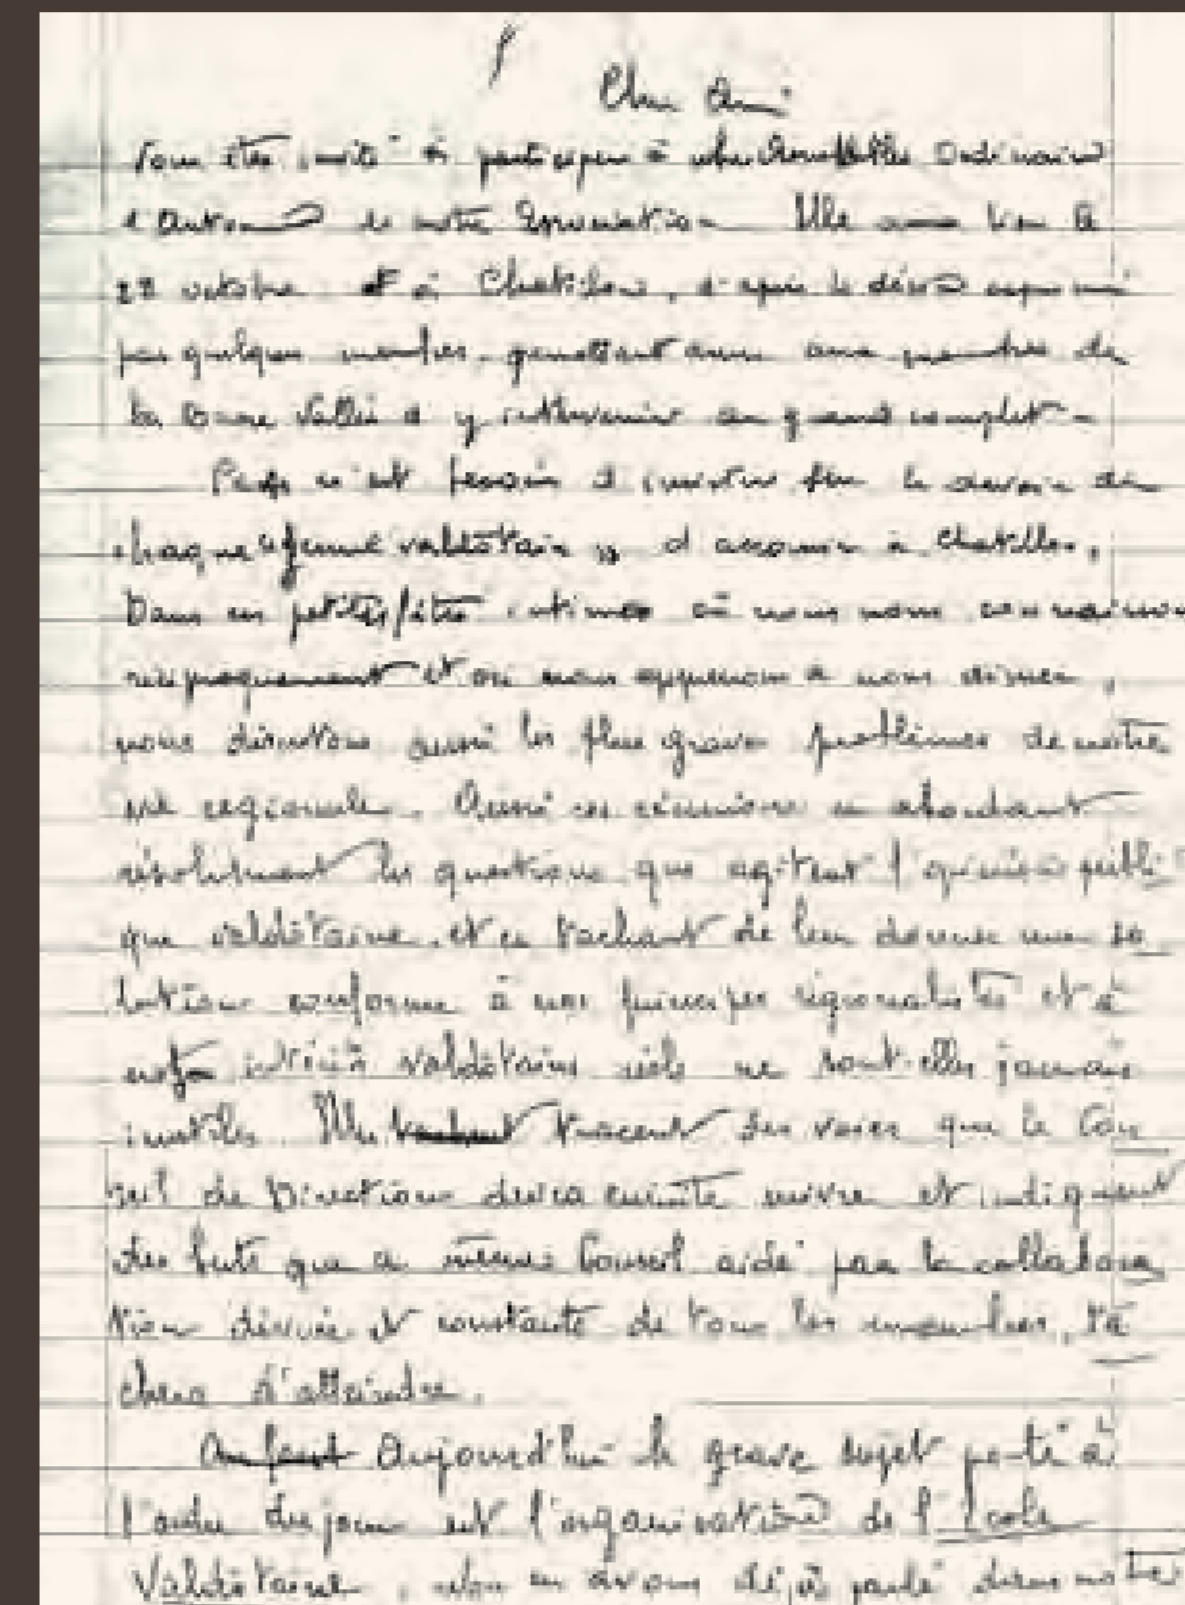 Cher Ami
Vous êtes invité à participer à Ordinaire
d'Automne de notre Association. Elle aura lieu le
22 octobre et à Chatillon, d'après le désir exprimé
par quelques membres, permettant ainsi aux membres de
la Basse Vallée d'y intervenir au grand complet -
Pas n'est besoin d'insister sur le devoir de
chaque "Jeune valdôtain" d'accourir à Chatillon,
Dans ces petites fêtes intimes où nous nous connaissons
réciproquement et où nous apprenons à nous aimer,
nous discutons aussi les plus graves problèmes de notre
vie régionale. Aussi ces réunions en abordant
résolument les questions que agitent l'opinion publi
que valdôtaine, et en tachant de leur donner une so
lution conforme à nos principes régionalistes et à
nos intérêts valdôtains réels ne sont-elles jamais
inutiles. Elles tracent des voies que le Con
seil de Direction devra ensuite suivre et indiquent
des buts que ce même Conseil aidé par la collabora
tion dévouée et constante de tous les membres, tâ
chera d'atteindre.
Aujourd'hui le grave sujet porté à
l'ordre du jour est l'organisation de l'École
Valdôtaine, nous en avons déjà parlé dans notre